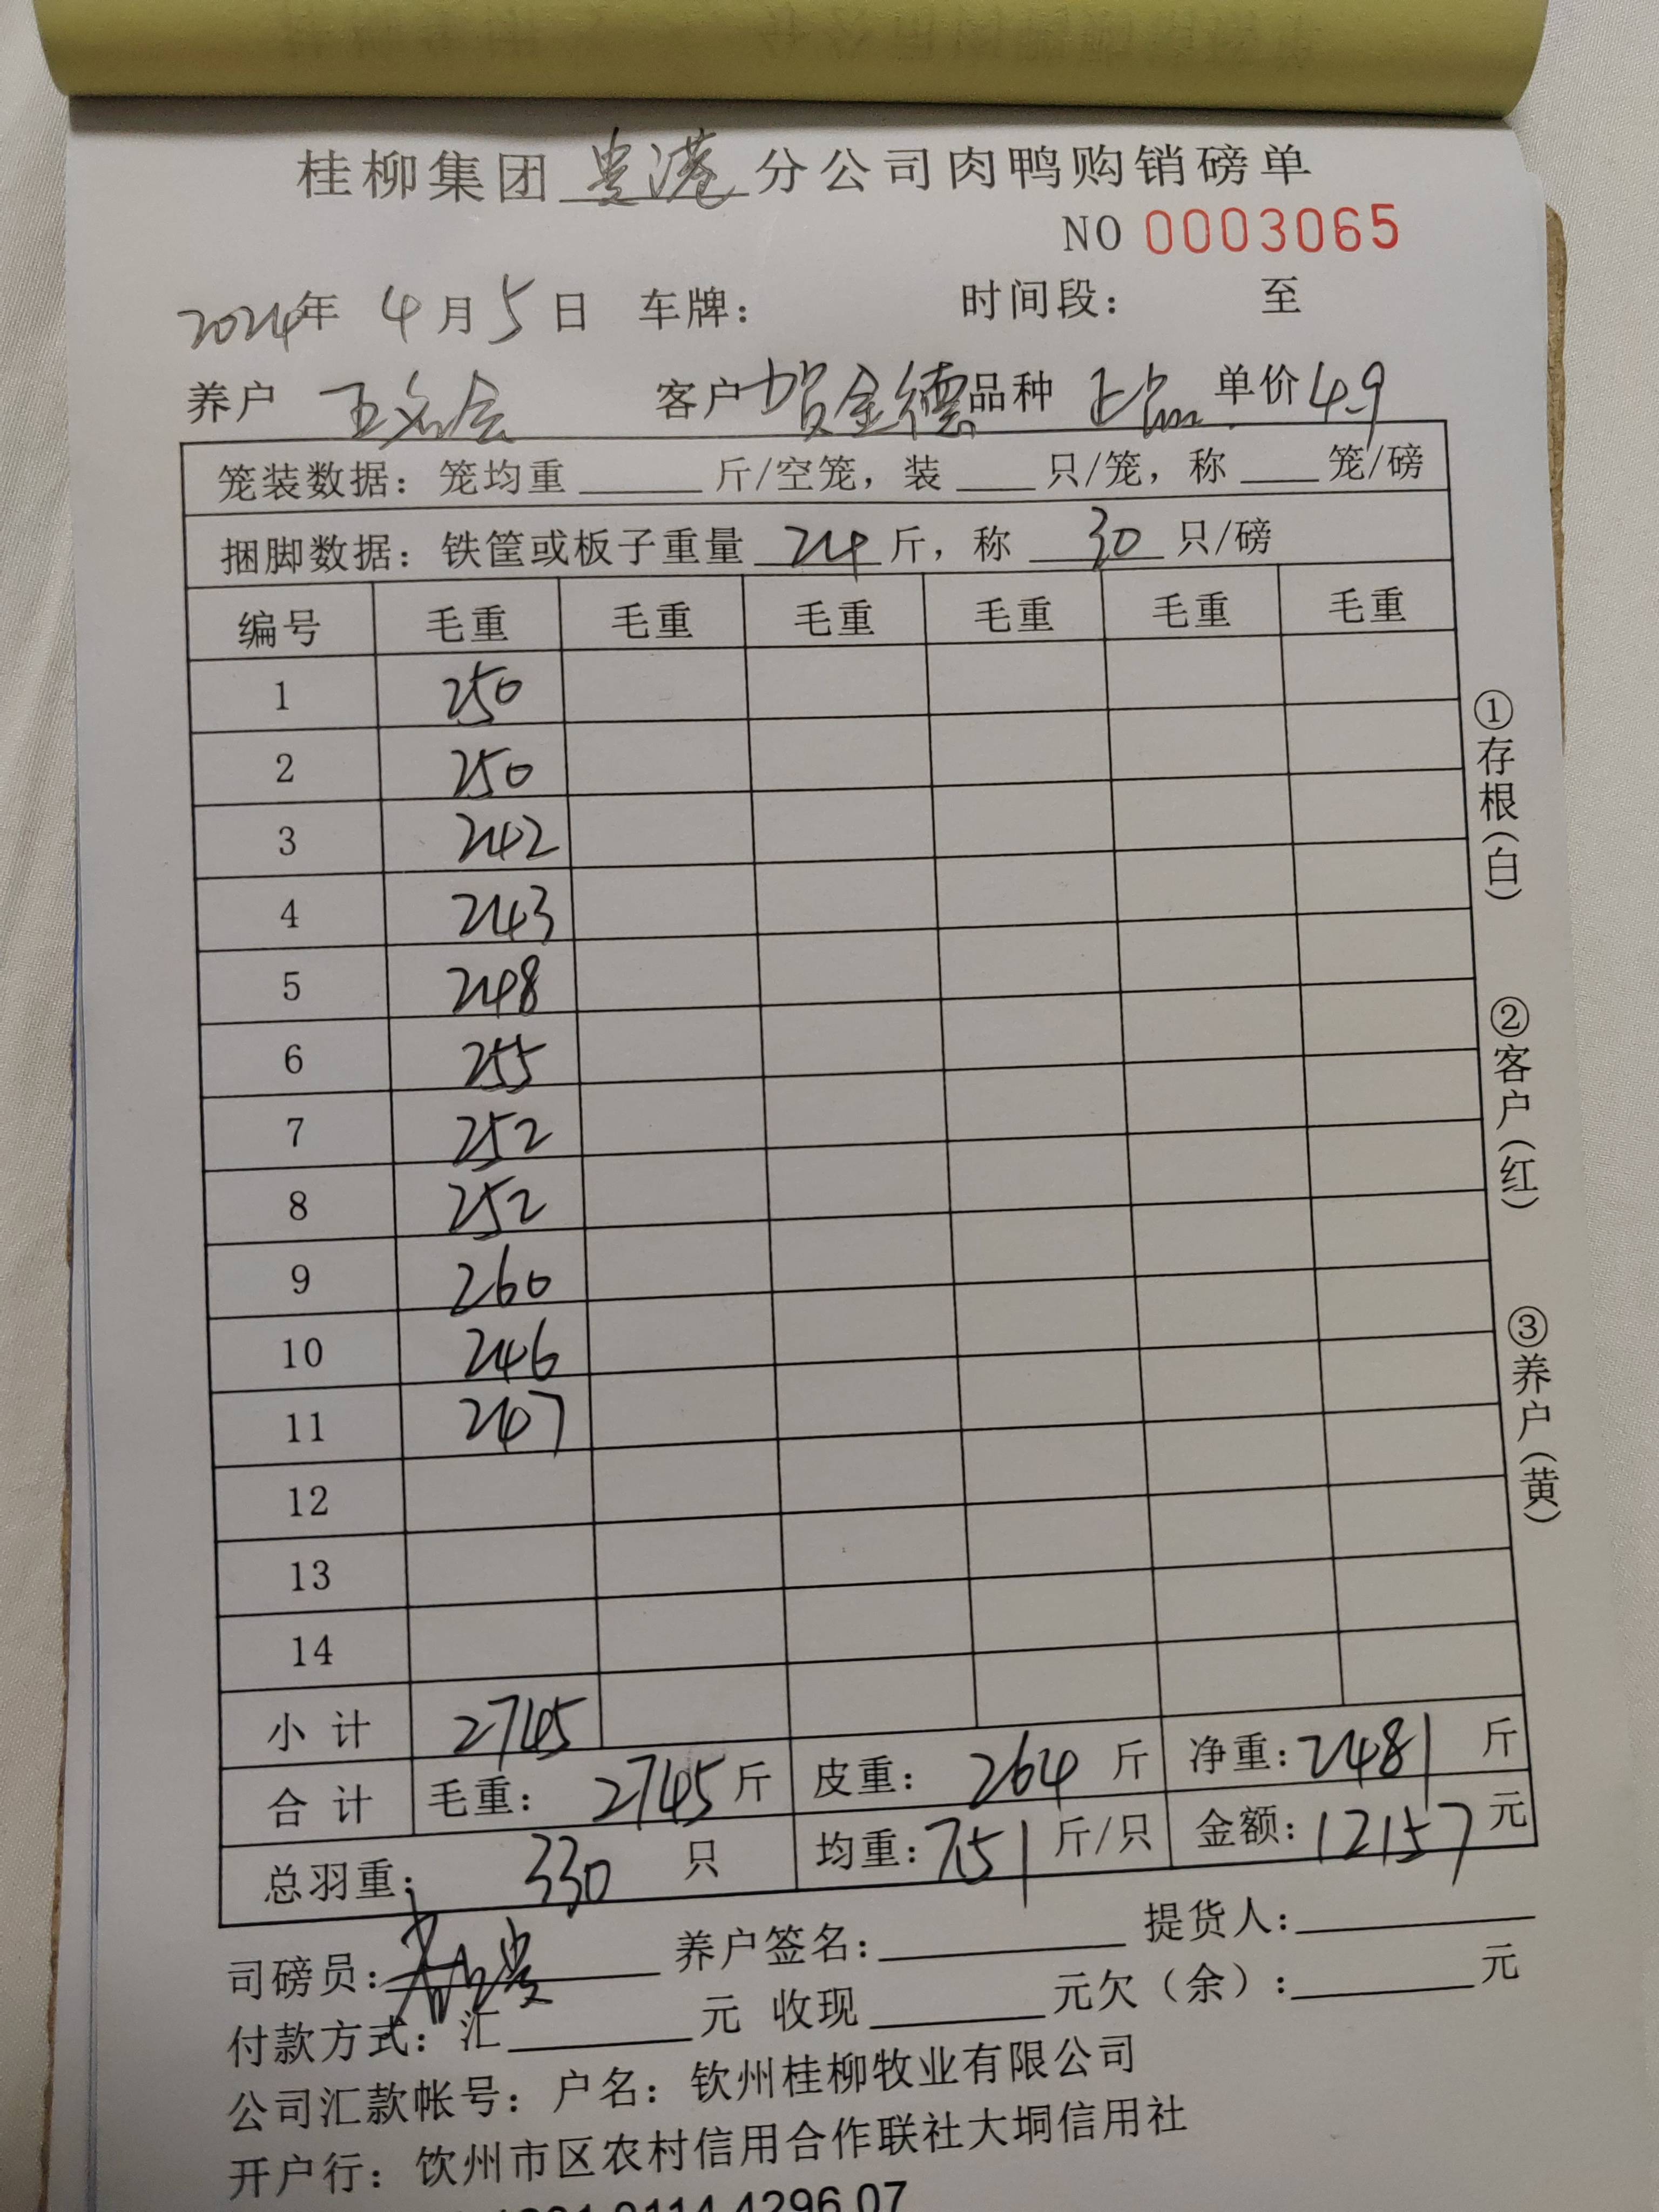 桂柳集团贵港分公司肉鸭购销磅单
NO 0003065
2024年 4月5日 车牌： 时间段： 至
养户 王名会 客户 贺金德 品种 正品 单价 4.9
笼装数据：笼均重____斤/空笼，装____只/笼，称____笼/磅
捆脚数据：铁筐或板子重量 24 斤，称 30 只/磅
编号 毛重 毛重 毛重 毛重 毛重 毛重
1 250
2 250
3 242
4 243
5 248
6 255
7 252
8 252
9 260
10 246
11 247
12
13
14
小计 2745
合计 毛重：2745斤 皮重：264斤 净重：2481斤
总羽重：330只 均重：7.51斤/只 金额：12157元
司磅员： 养户签名：____ 提货人：____
付款方式：汇____元 收现____元欠（余）：____元
公司汇款帐号：户名：钦州桂柳牧业有限公司
开户行：饮州市区农村信用合作联社大垌信用社
①存根（白）
②客户（红）
③养户（黄）